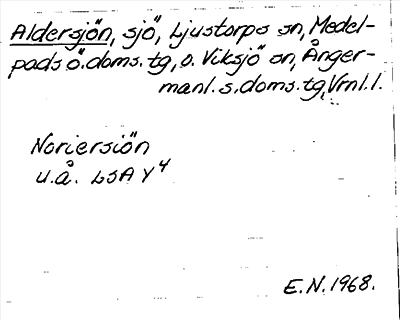 Aldersjön, sjö, Ljustorps sn, Medel-
pads ö.doms.tg, o. Viksjö sn, Ånger-
manl. s.doms.tg, Vrnl.l.
Noriersiön
u.å. LSA Y4
E.N. 1968.